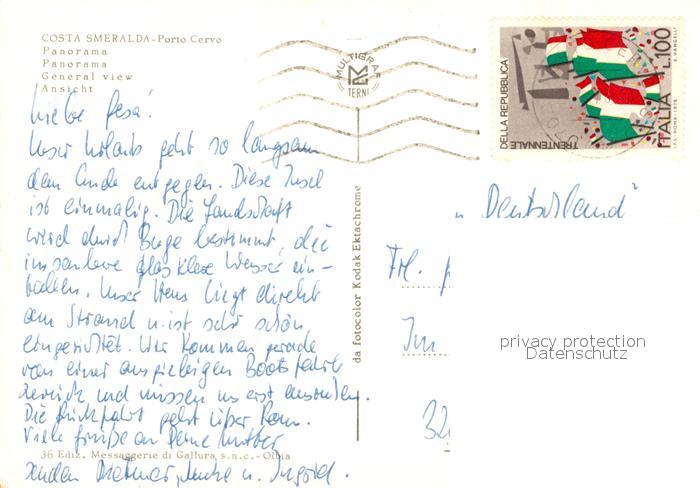 COSTA SMERALDA-Porto Cervo
Panorama
Panorama
General view
Ansicht
MULTIGRAF
TERNI
TRENTENNALE
DELLA REPUBBLICA
ITALIA L.100
E. VANGELLI
I.P.S.-ROMA-1976
Liebe
Unser Urlaub geht so langsam
dem Ende entgegen. Diese Insel
ist einmalig. Die Landschaft
wird durch Berge bestimmt, die
glasklare Wasser ein-
Unser Haus liegt direkt
am Strand u. ist sehr schön
eingerichtet. Wir kommen gerade
von einer ausgiebigen Bootsfahrt
zurück und müssen uns erst ausruhen.
Die Rückfahrt geht über Rom.
Viele Grüße an Deine Mutter
36 Ediz. Messaggerie di Gallura s.n.c. - Olbia
senden Dietmar, u. Ingrid.
da fotocolor Kodak Ektachrome
„Deutschland"
Frl.
Im
32
privacy protection
Datenschutz